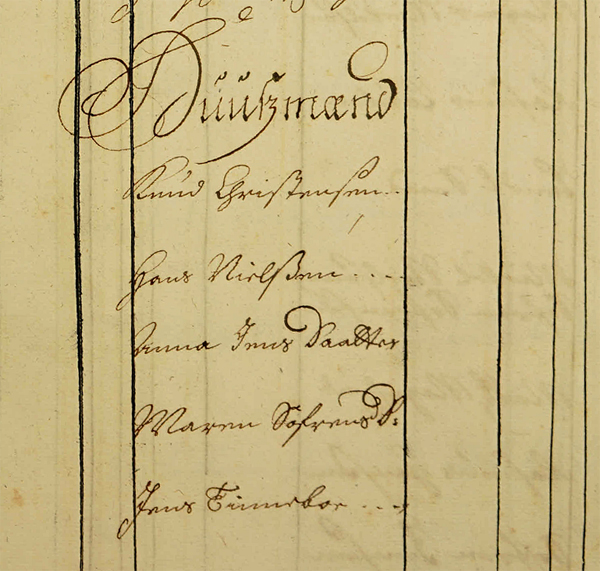 Huuszmænd
Knud Christensen..
Hans Nielszen....
Anna Jens Daatter
Maren Søfrens D:
Jens Tinneboe ...